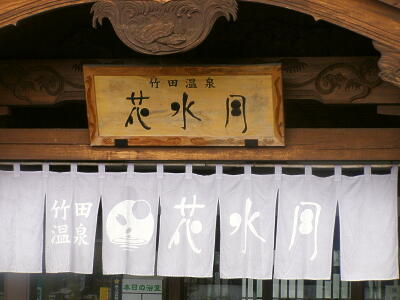 竹田温泉
花水月
竹田
温泉
花水月
本日の浴室